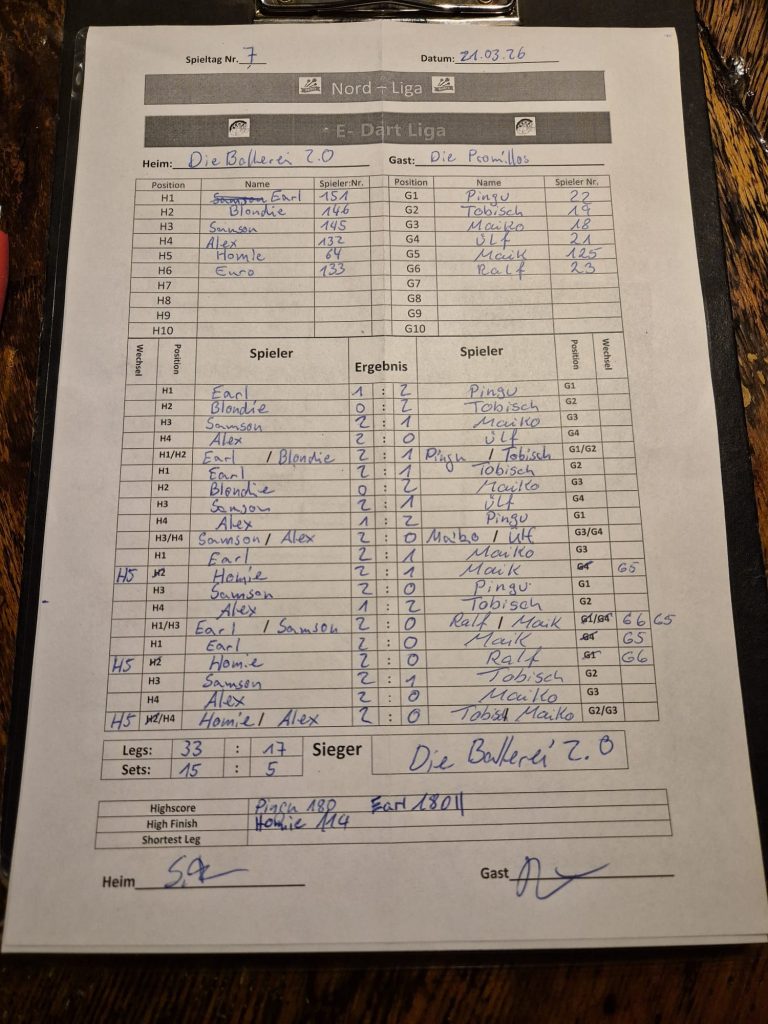 Spieltag Nr. 7 Datum: 21.03.26
Nord – Liga
E- Dart Liga
Heim: Die Batterei 2.0 Gast: Die Promillos
Position Name Spieler:Nr. Position Name Spieler Nr.
H1 Samson Earl 151 G1 Pingu 22
H2 Blondie 146 G2 Tobisch 19
H3 Samson 145 G3 Maiko 18
H4 Alex 132 G4 Ulf 21
H5 Homie 64 G5 Maik 125
H6 Euro 133 G6 Ralf 23
H7 G7
H8 G8
H9 G9
H10 G10
Wechsel Position Spieler Ergebnis Spieler Position Wechsel
H1 Earl 1 : 2 Pingu G1
H2 Blondie 0 : 2 Tobisch G2
H3 Samson 2 : 1 Maiko G3
H4 Alex 2 : 0 Ulf G4
H1/H2 Earl / Blondie 2 : 1 Pingu / Tobisch G1/G2
H1 Earl 2 : 1 Tobisch G2
H2 Blondie 0 : 2 Maiko G3
H3 Samson 2 : 1 Ulf G4
H4 Alex 1 : 2 Pingu G1
H3/H4 Samson / Alex 2 : 0 Maiko / Ulf G3/G4
H1 Earl 2 : 1 Maiko G3
H5 H2 Homie 2 : 1 Maik G4 G5
H3 Samson 2 : 0 Pingu G1
H4 Alex 1 : 2 Tobisch G2
H1/H3 Earl / Samson 2 : 0 Ralf / Maik G1/G4 G6 G5
H1 Earl 2 : 0 Maik G4 G5
H5 H2 Homie 2 : 0 Ralf G1 G6
H3 Samson 2 : 1 Tobisch G2
H4 Alex 2 : 0 Maiko G3
H5 H2/H4 Homie / Alex 2 : 0 Tobisch Maiko G2/G3
Legs: 33 : 17 Sieger Die Batterei 2.0
Sets: 15 : 5
Highscore Pingu 180 Earl 180 II
High Finish Homie 114
Shortest Leg
Heim Gast